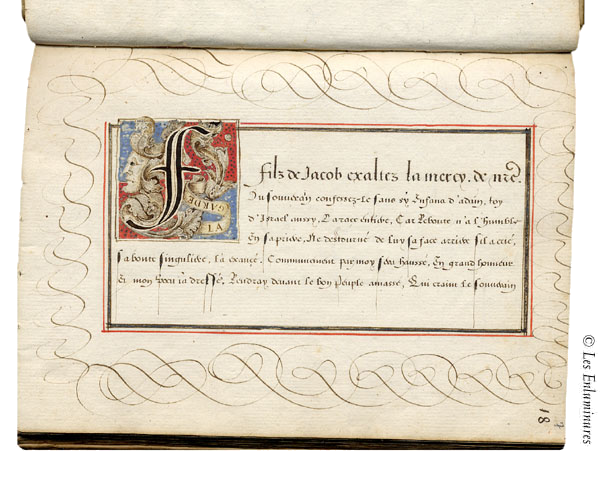 F
LA GARDE
filz de Jacob exaltez la mercy. de nr̃e.
Du souverain confessez-le sans sy Enfans d'adam, toy
d'Israel aussy, La race entiere, Car Rebouté n'a l'humble
En sa priere, Ne destourné de luy sa face arriere s'il a crié,
sa bonté singuliere, la exaucé. Communement par moy sera haussé, En grand honneur
Et mon veu ja dressé, Rendray devant le bon peuple amassé, Qui craint le souverain
18
© Les Enluminures